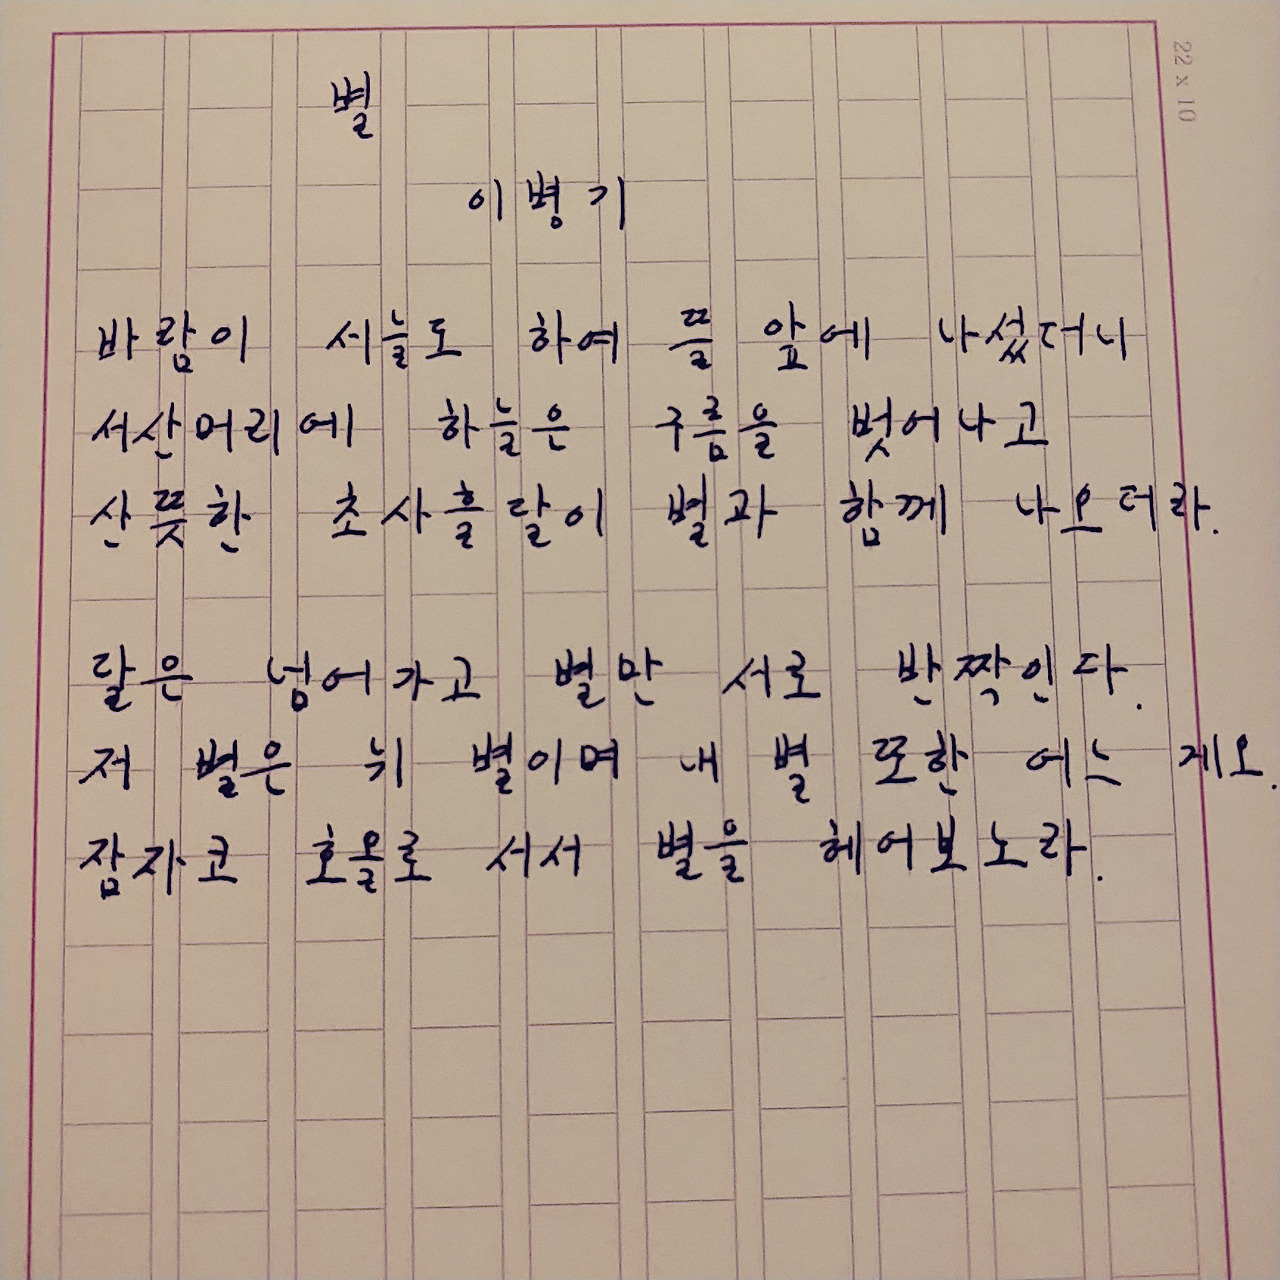 별
이병기
바람이 서늘도 하여 뜰 앞에 나섰더니
서산머리에 하늘은 구름을 벗어나고
산뜻한 초사흘달이 별과 함께 나오더라.
달은 넘어가고 별만 서로 반짝인다.
저 별은 뉘 별이며 내 별 또한 어느 게오.
잠자코 호올로 서서 별을 헤어보노라.
22 x 10